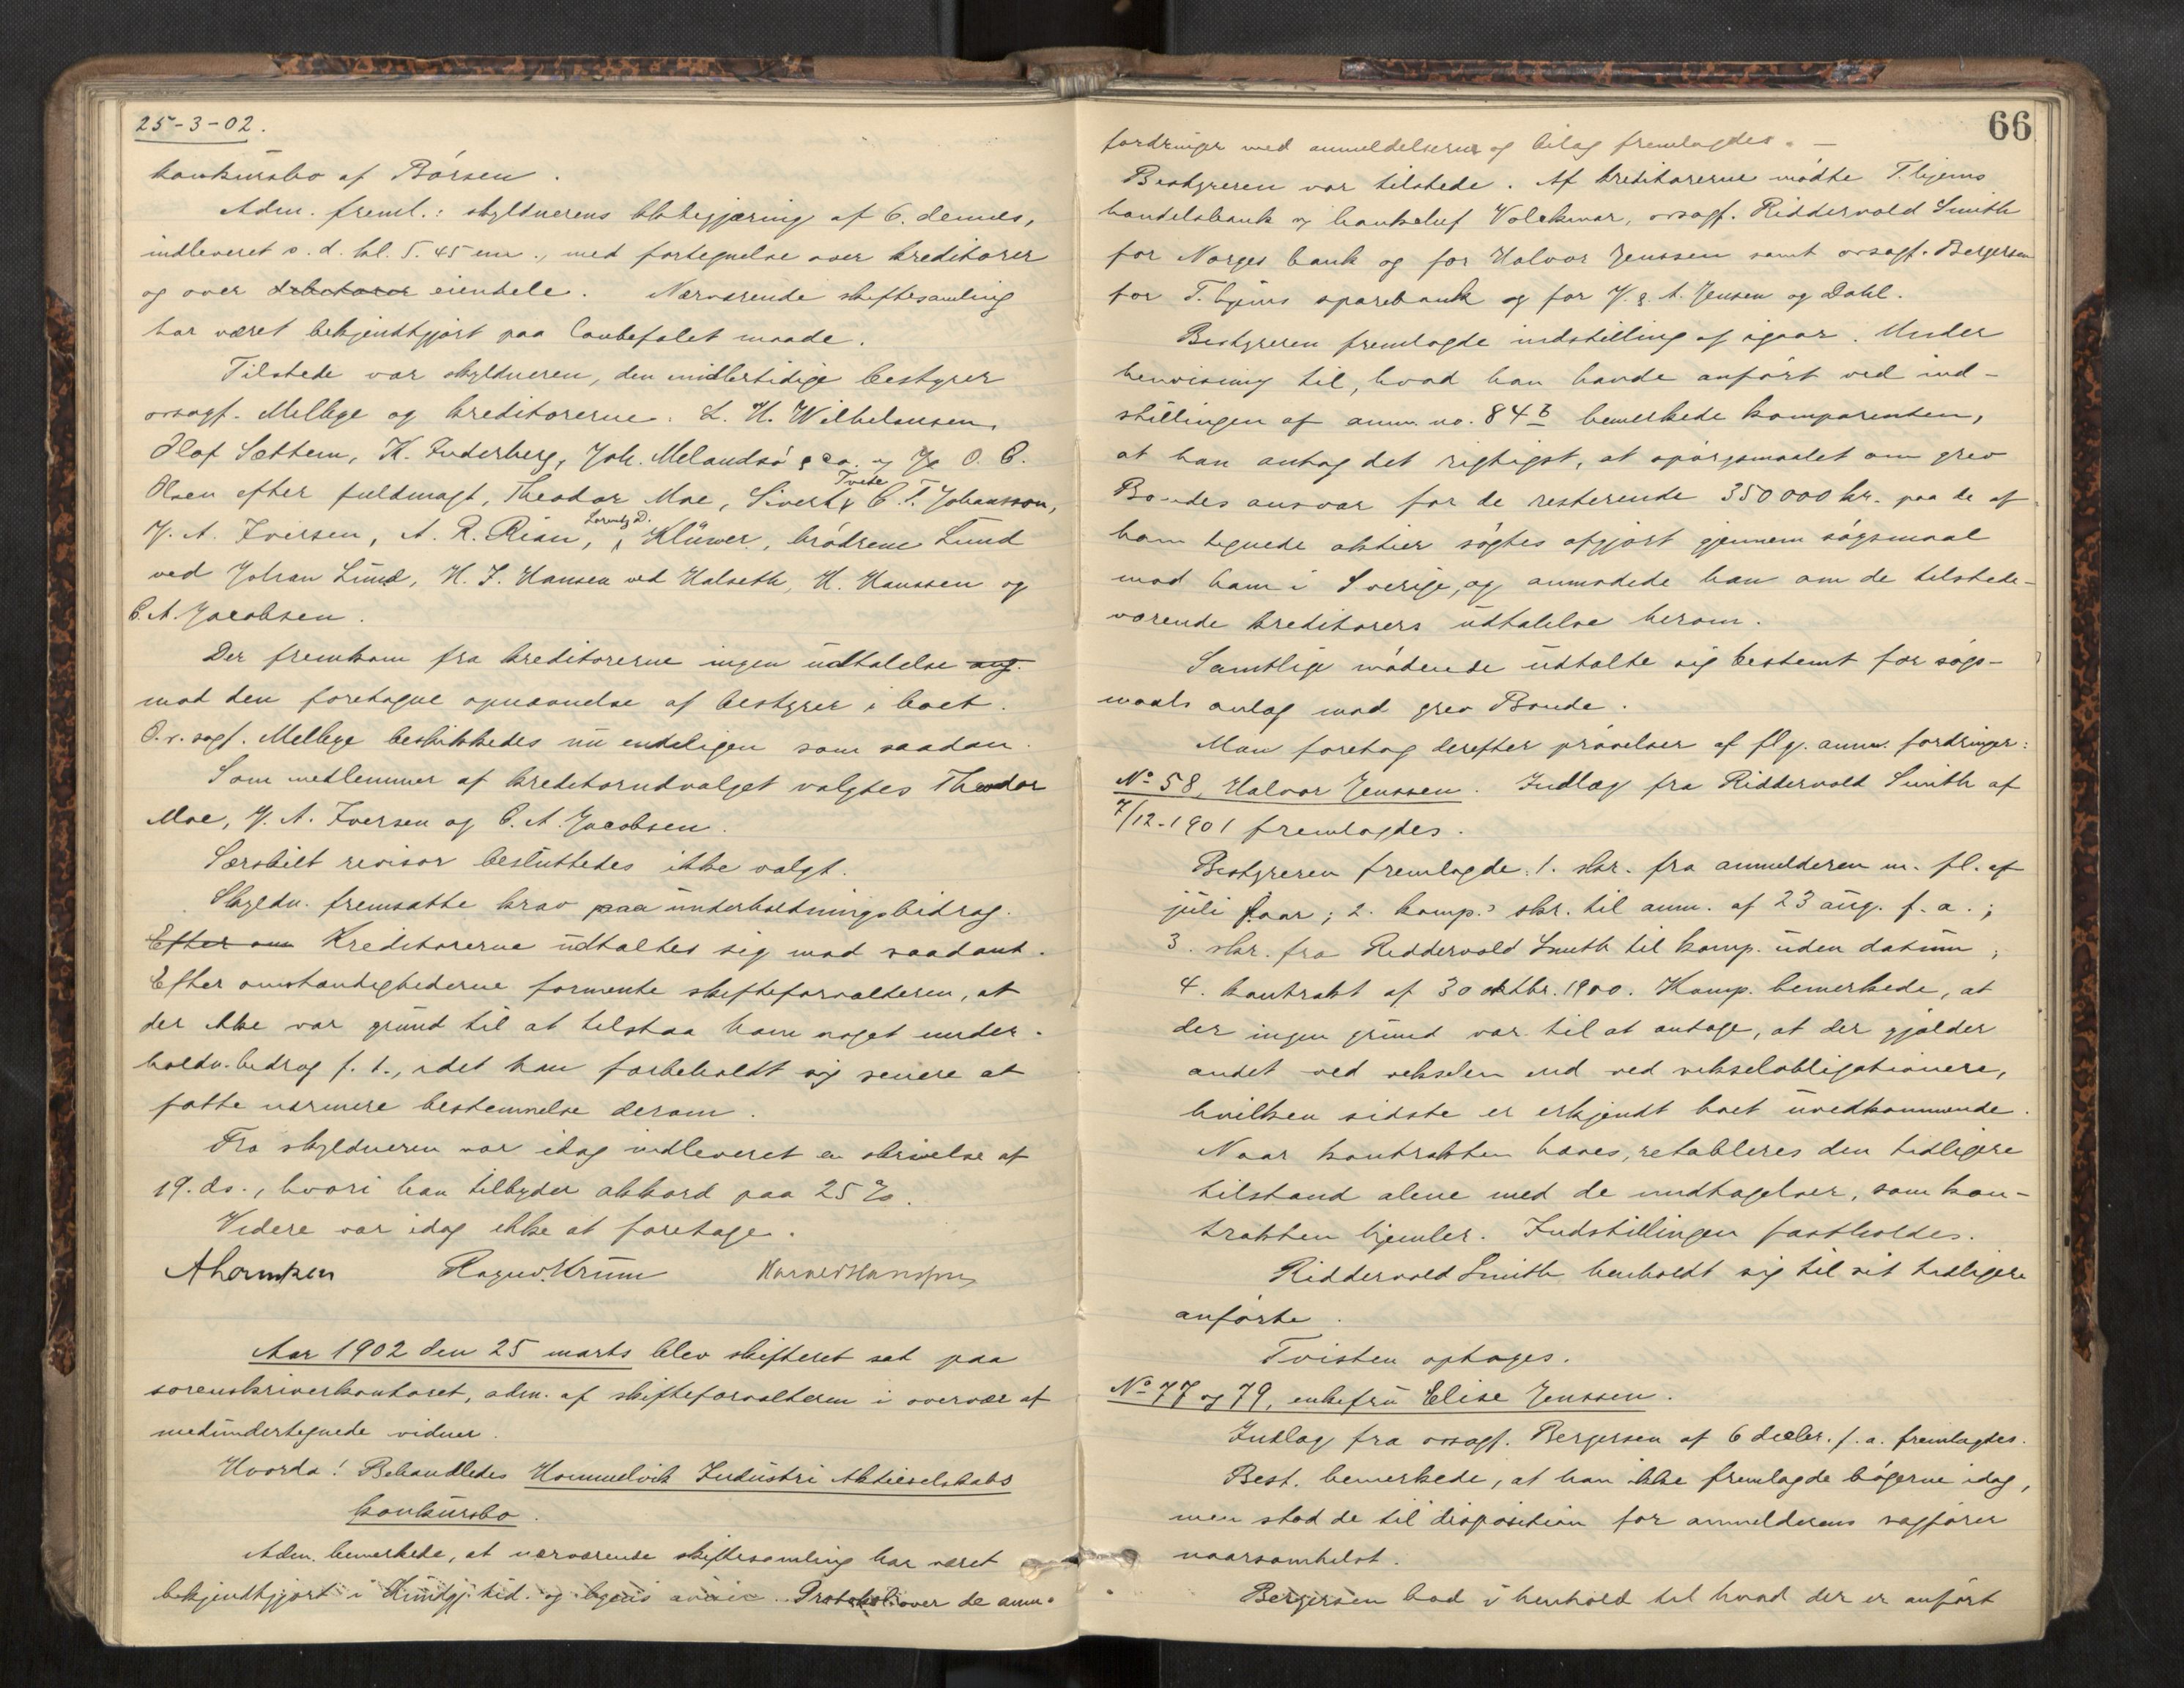 25-3-02.
konkursbo af Børsen.
Adm. freml.: skyldnerens bobegjæring af 6. dennes,
indleveret s. d. kl. 5.45 em., med fortegnelse over kreditorer
og over debitorer eiendele. Nærværende skiftesamling
har været bekjendtgjort paa lovbefalet maade.
Tilstede var skyldneren, den midlertidige bestyrer
orsagf. Mellbye og kreditorerne. L. H. Wilhelmsen,
Olaf Sættem, K. Inderberg, Joh. Melandsø & co. og O. C.
Olsen efter fuldmagt, Theodor Moe, Sivert Tvede, C. F. Johansson,
J. A. Iversen, A. R. Rian, Lorentz D. Klüwer, brødrene Lund
ved Johan Lund, H. J. Hansen ved Halseth, H. Hanssen og
C. A. Jacobsen.
Der fremkom fra kreditorerne ingen udtalelse ang.
mod den foretagne opnævnelse af bestyrer i boet.
O.r.sagf. Mellbye beskikkedes nu endeligen som saadan.
Som medlemmer af kreditorudvalget valgtes Theodor
Moe, J. A. Iversen og C. A. Jacobsen.
Særskilt revisor besluttedes ikke valgt.
Skyldn. fremsatte krav paa underholdningsbidrag.
Efter om Kreditorerne udtaltes sig mod saadant.
Efter omstændighederne formente skifteforvalteren, at
der ikke var grund til at tilstaa ham noget under-
holdn.bidrag f. t., idet han forbeholdt sig senere at
fatte nærmere bestemmelse derom.
Fra skyldneren var idag indleveret en skrivelse af
19. ds., hvori han tilbyder akkord paa 25 %.
Videre var idag ikke at foretage.
Ragnv. Krum
Aar 1902 den 25 marts blev skifteret sat paa
sorenskriverkontoret, adm. af skifteforvalteren i overvær af
medundertegnede vidner.
Hvorda! Behandledes Hommelvik Industri Aktieselskabs
konkursbo.
Adm. bemerkede, at nærværende skiftesamling har været
bekjendtgjort i Kundgj.tid. og byens avis. Protokol over de anm.
66
fordringer med anmeldelserne og bilag fremlagdes. —
Bestyreren var tilstede. Af kreditorerne mødte T.hjems
handelsbank og bankchef Volckmar, orsagf. Riddervold Smith
for Norges bank og for Halvor Jenssen samt orsagf. Bergersen
for T.hjems sparebank og for J. & A. Jensen og Dahl.
Bestyreren fremlagde indstilling af igaar. Under
henvisning til, hvad han havde anført ved ind-
stillingen af anm. no. 84 b bemerkede komparenten,
at han antog det rigtigst, at spørgsmaalet om grev
Bondes ansvar for de resterende 350000 kr. paa de af
ham tegnede aktier søgtes afgjort gjennem søgsmaal
mod ham i Sverige, og anmodede han om de tilstede-
værende kreditorers udtalelse herom.
Samtlige mødende udtalte sig bestemt for søgs-
maals anlæg mod grev Bonde.
Man foretog derefter prøvelser af flg. anm. fordringer:
No 58, Halvor Jenssen. Indlæg fra Riddervold Smith af
7/12-1901 fremlagdes.
Bestyreren fremlagde: 1. skr. fra anmelderen m. fl. af
juli f. aar; 2. komp.s skr. til anm. af 23 aug. f. a.;
3. skr. fra Riddervold Smith til komp. uden datum;
4. kontrakt af 30 oktbr. 1900. Komp. bemerkede, at
der ingen grund var til at antage, at der gjælder
andet ved vekselen end ved vekselobligationere,
hvilken sidste er erkjendt boet uvedkommende.
Naar kontrakten hæves, retableres den tidligere
tilstand alene med de undtagelser, som kon-
trakten hjemler. Indstillingen fastholdes.
Riddervold Smith henholdt sig til sit tidligere
anførte.
Tvisten optages.
No 77 og 79, enkefru Elise Jenssen.
Indlæg fra orsagf. Bergersen af 6 decbr. f. a. fremlagdes.
Best. bemerkede, at han ikke fremlagde bøgerne idag,
men stod de til disposition for anmelderens sagfører
naarsomhelst.
Bergersen bad i henhold til hvad der er anført